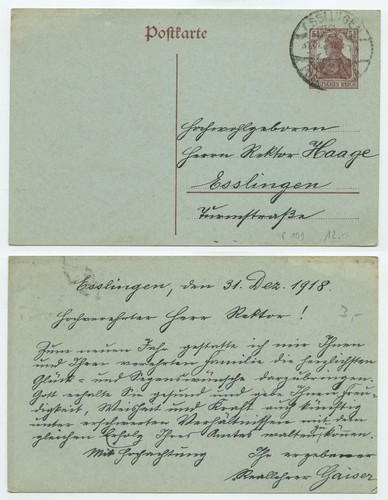 Postkarte
ESSLINGEN
DEUTSCHES REICH
Hochwohlgeboren
Herrn Rektor Haage
Esslingen
Turmstraße
P 109 12.-
Esslingen, den 31. Dez. 1918.
3,-
Hochverehrter Herr Rektor!
Zum neuen Jahr gestatte ich mir Ihnen
und Ihrer verehrten Familie die herzlichsten
Glück- und Segenswünsche darzubringen.
Gott erhalte Sie gesund und gebe Ihnen Freu-
digkeit, Weisheit und Kraft auch künftig
unter erschwerten Verhältnissen mit dem
gleichen Erfolg Ihres Amtes walten zu können.
Mit Hochachtung Ihr ergebener
Reallehrer Gaiser